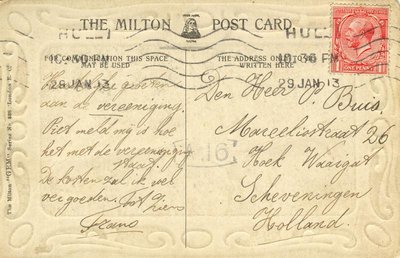 THE MILTON POST CARD
HULL HULL
10.30 PM 10.30 PM
29 JAN 13 29 JAN 13
FOR COMMUNICATION THIS SPACE
MAY BE USED
THE ADDRESS ONLY TO BE
WRITTEN HERE
groeten
aan de vereeniging.
Piet meld mij is hoe
het met de vereeniging
staat.
De kosten zal ik ver
goeden. Tot ziens
Frans
Den Heer P. Buis.
Marcelisstraat 26
Hoek Waargat
Scheveningen
Holland.
16
ONE PENNY
The Milton "GEM" Series No. London E. C.